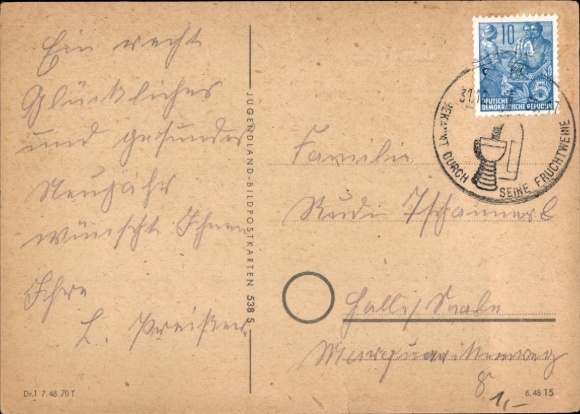 Ein recht
Glückliches
und gesundes
Neujahr
wünscht Ihnen
Ihre
L. Preißer
JUGENDLAND-BILDPOSTKARTEN 538 S
10
DEUTSCHE
DEMOKRATISCHE REPUBLIK
31.12
BEKANNT DURCH SEINE FRUCHTWEINE
Familie
Rudi
Halle/Saale
8
1,-
Dr.1 7.48 70T
6.48 15